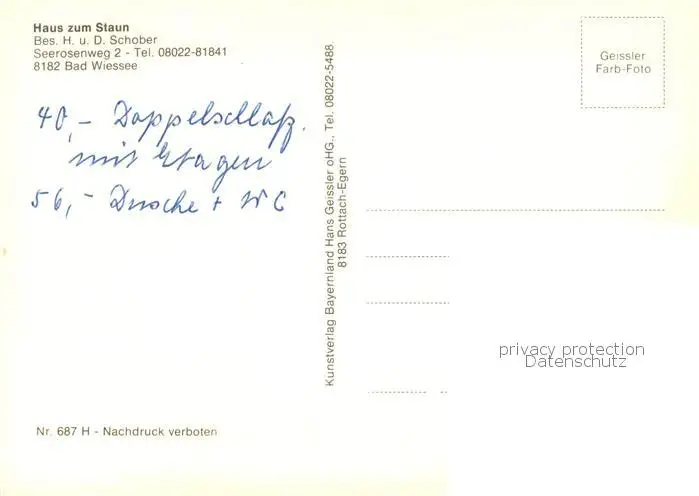 Haus zum Staun
Bes. H. u. D. Schober
Seerosenweg 2 - Tel. 08022-81841
8182 Bad Wiessee
40,- Doppelschlafz.
mit Etagen
56,- Dusche + WC
Nr. 687 H - Nachdruck verboten
Kunstverlag Bayernland Hans Geissler oHG., Tel. 08022-5488
8183 Rottach-Egern
Geissler
Farb-Foto
privacy protection
Datenschutz